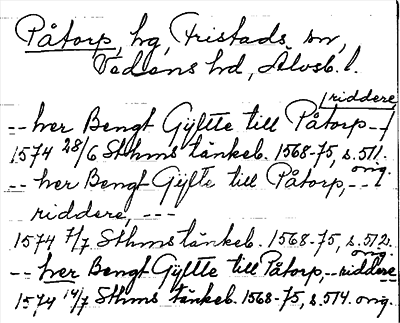 Påtorp, hg, Fristads sn,
Vedens hd, Älvsb. l.
riddere
-- her Bengt Gÿltte till Påtorp --
1574 28/6 Sthms tänkeb. 1568-75, s. 511.
orig.
-- her Bengt Gÿlte till Påtorp, --
riddere, ---
1574 7/7 Sthms tänkeb. 1568-75, s. 512.
orig.
-- her Bengt Gÿltte till Påtorp, -- riddere
1574 14/7 Sthms tänkeb. 1568-75, s. 514. orig.